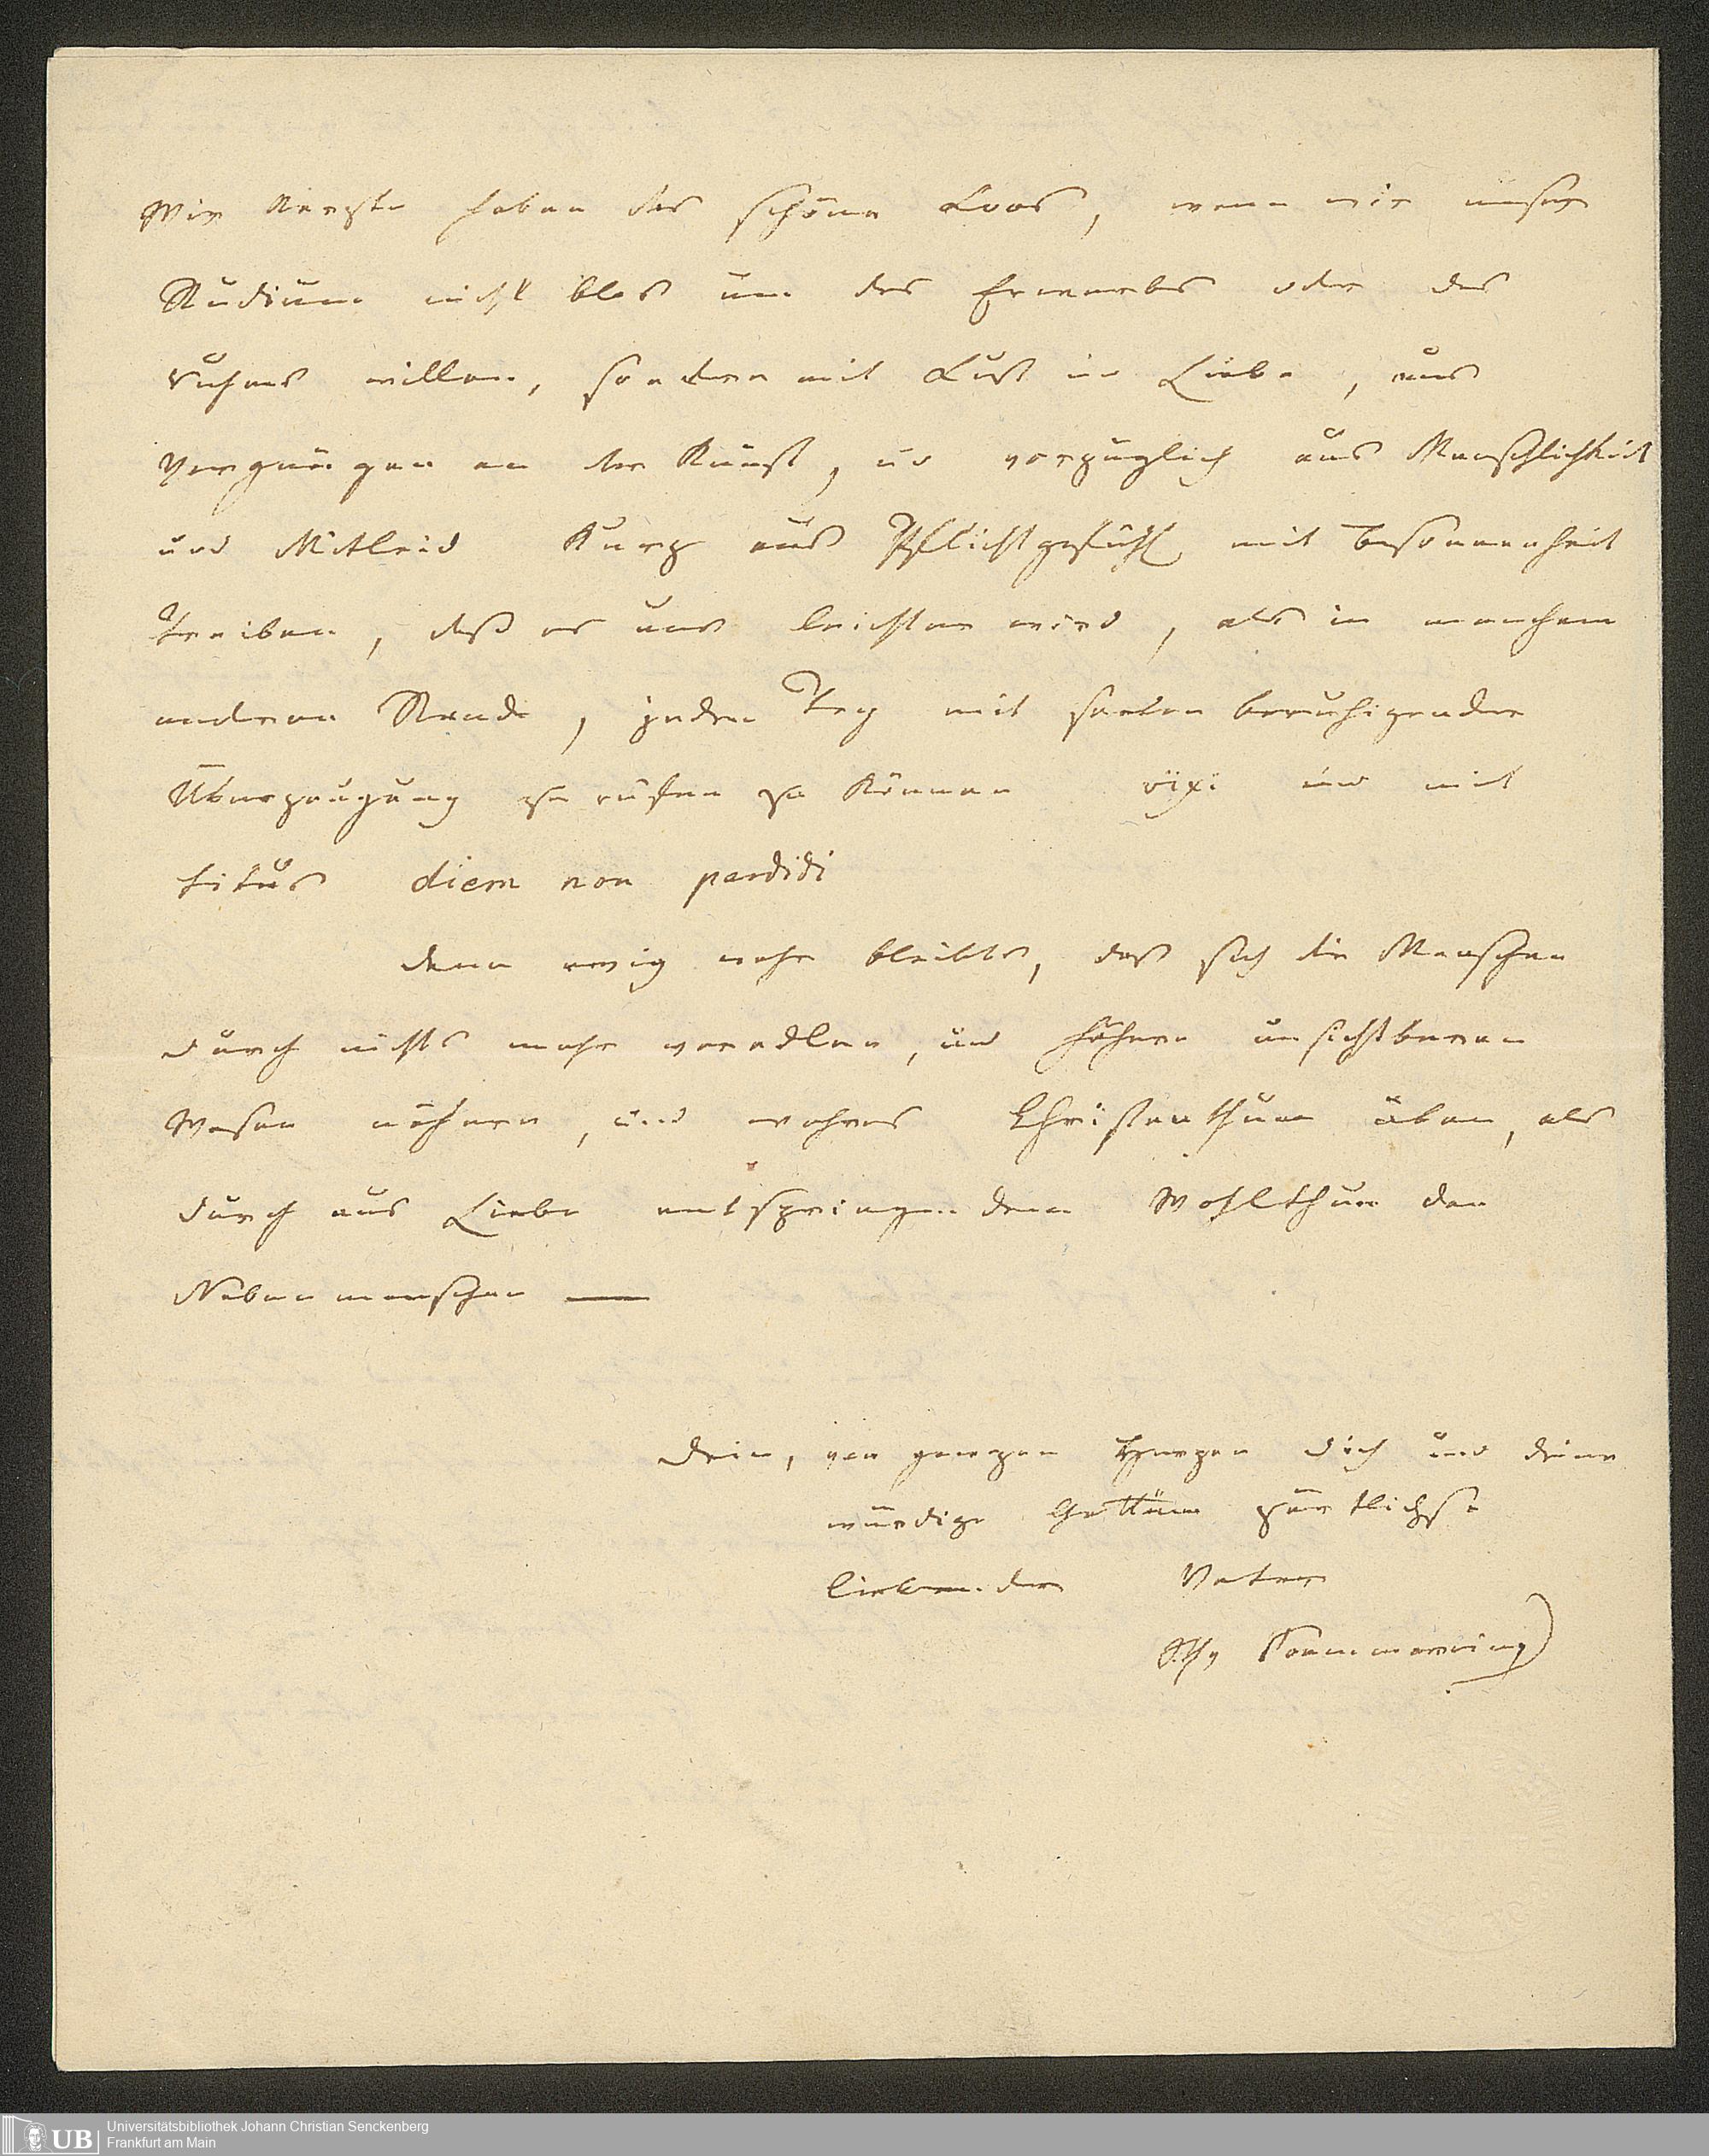 Wir Aerzte haben das schöne Loos, wenn wir unser
Studium nicht blos um des Erwerbes oder des
ruhms willen, sondern mit Lust und Liebe, aus
Vergnügen an der Kunst, und vorzüglich aus Menschlichkeit
und Mitleid Kurz aus Pflichtgefühl mit Besonnenheit
treiben, daß es uns leichter wird, als in manchem
anderen Stande, jeden Tag mit seelenberuhigender
Überzeugung zu rufen zu können vixi und mit
titus diem non perdidi
denn ewig wahr bleibts, daß sich die Menschen
durch nichts mehr veredlen, und höhern unsichtbaren
Wesen nähern, und wahres Christenthum üben, als
durch aus Liebe entspringendem Wohlthun den
Nebenmenschen —
Dein, von ganzen Herzen dich und deine
würdige Gattinn zärtlichst
liebender Vater
Soemmerring
UB Universitätsbibliothek Johann Christian Senckenberg
Frankfurt am Main